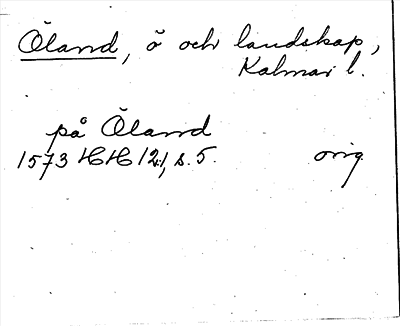 Öland, ö och landskap,
Kalmar l.
på Öland
1573 HH 12:1, s. 5. orig.